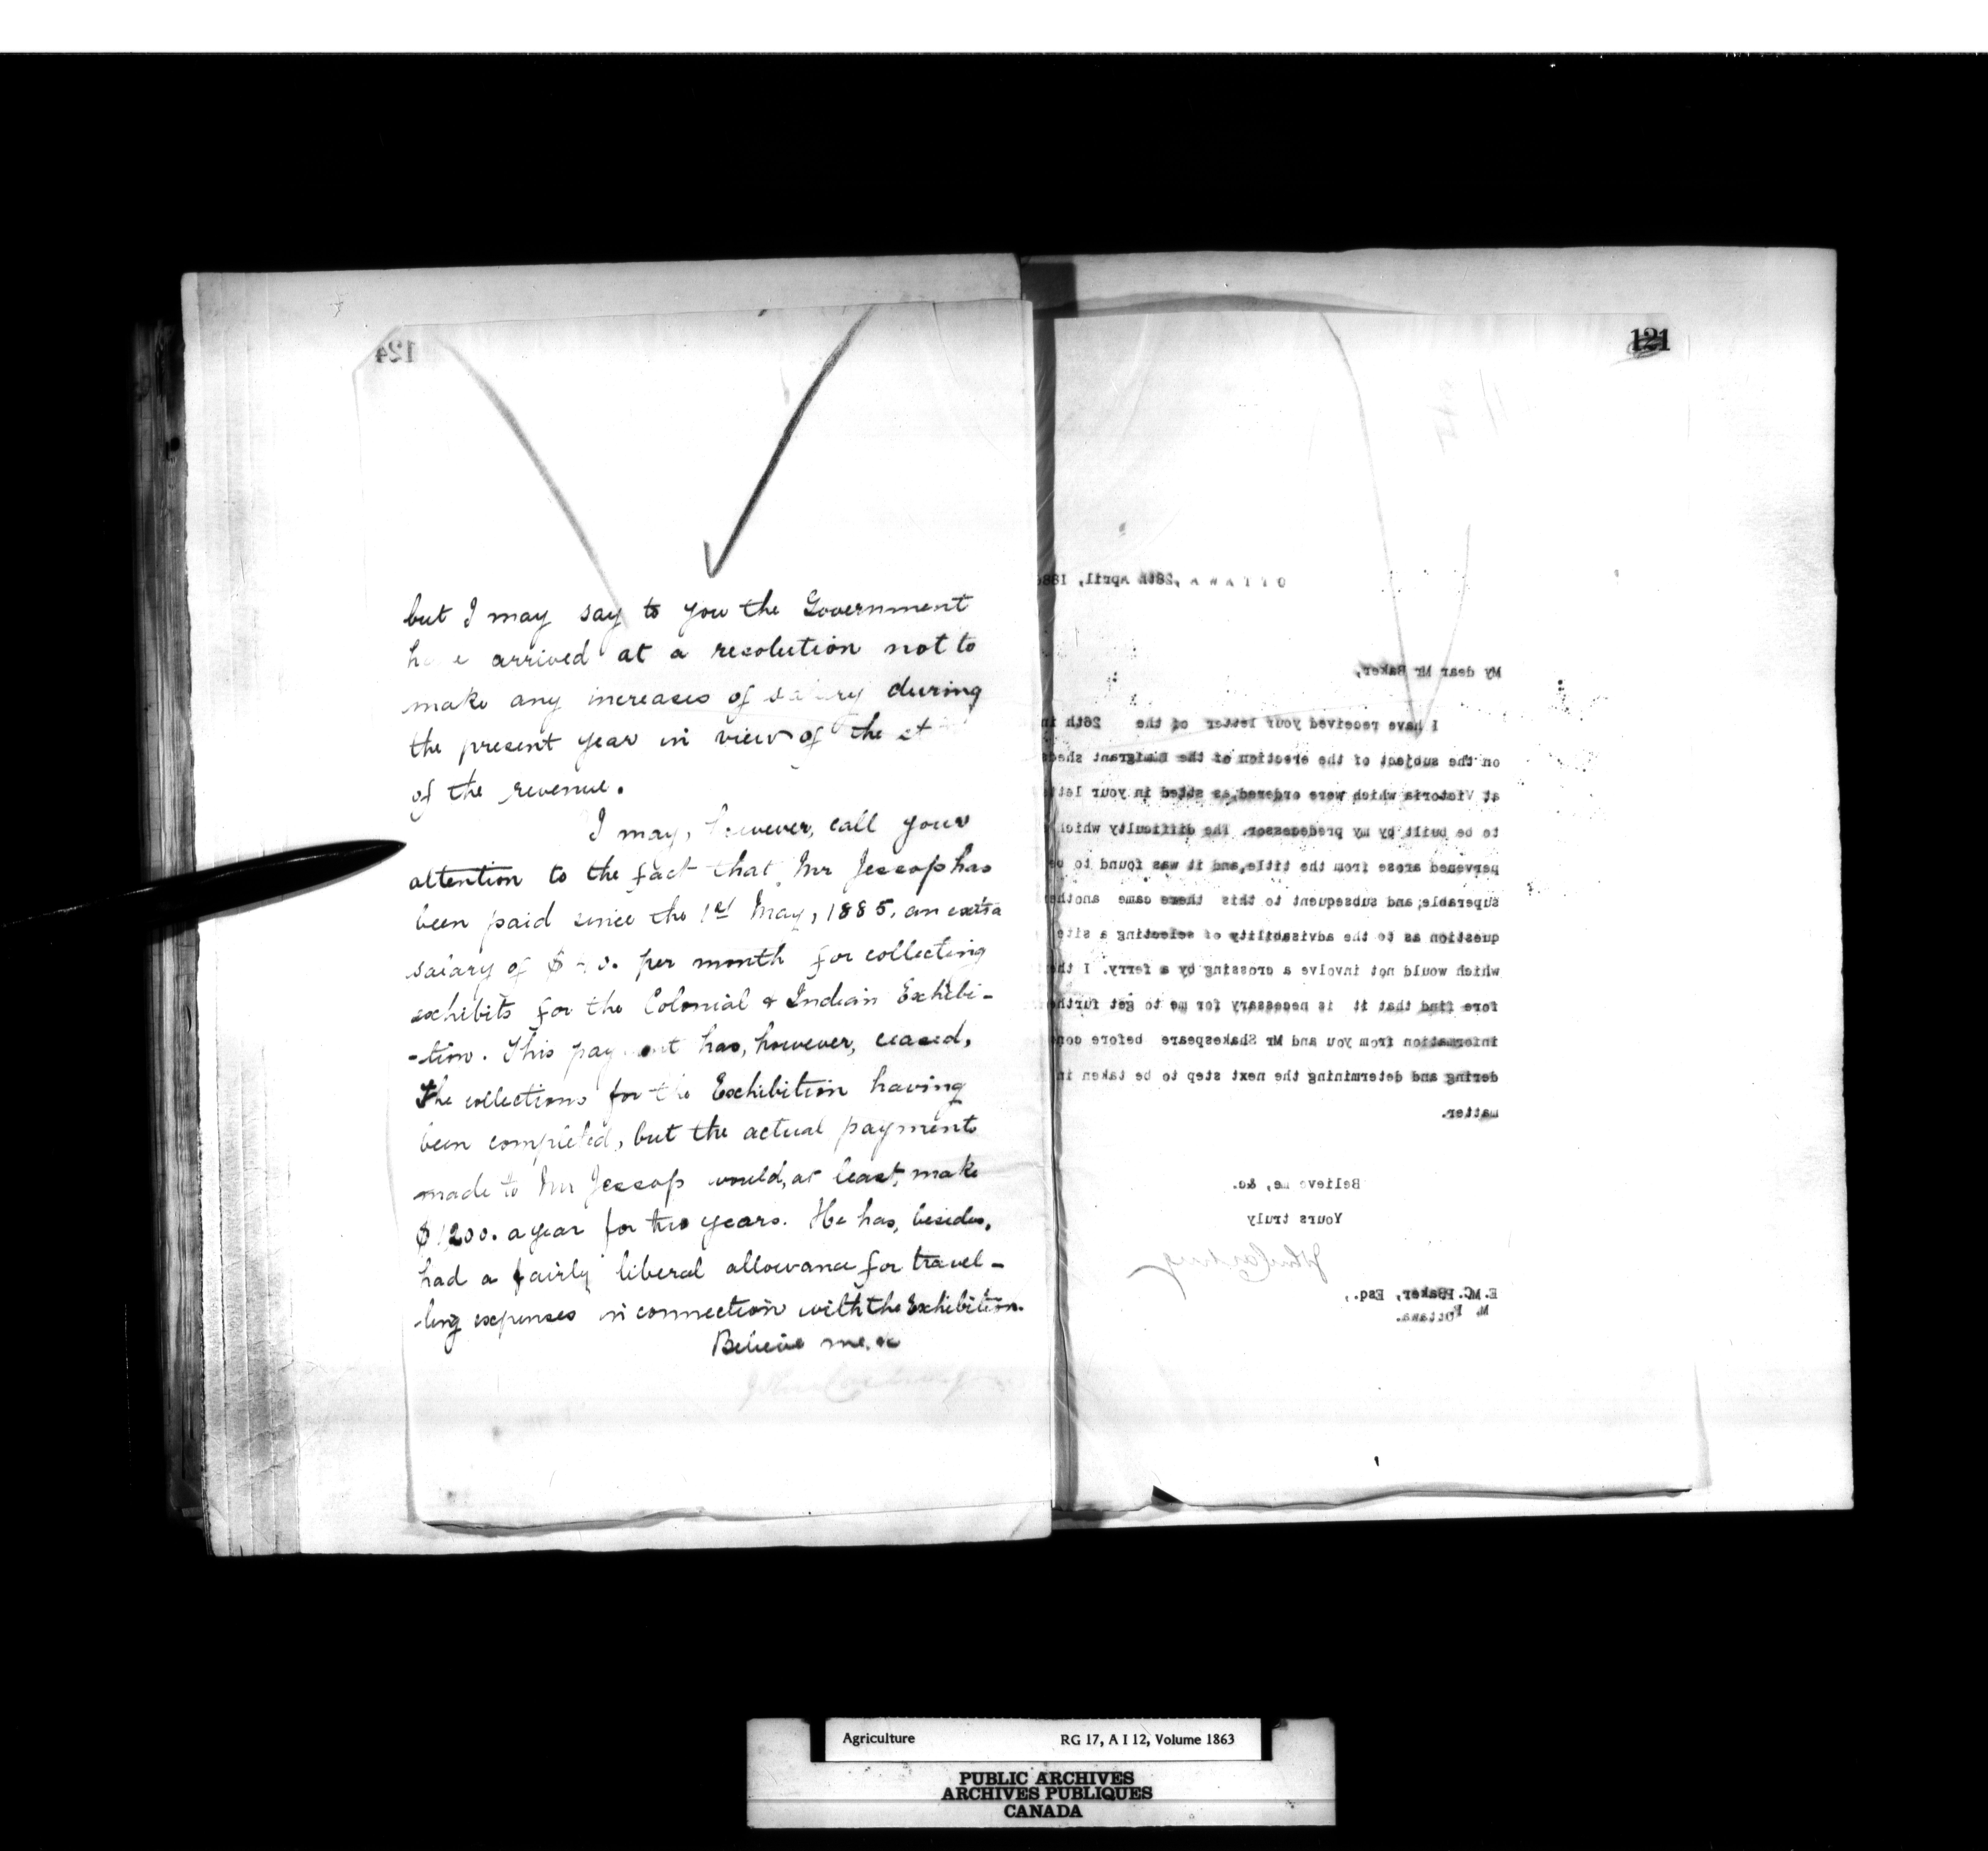 124
but I may say to you the Government
have arrived at a resolution not to
make any increases of salary during
the present year in view of the st
of the revenue.
I may, however, call your
attention to the fact that Mr Jessop has
been paid since the 1st May, 1885, an extra
salary of $ per month for collecting
exhibits for the Colonial & Indian Exhibi-
-tion. This payment has, however, ceased,
the collections for the Exhibition having
been completed, but the actual payments
made to Mr Jessop would, at least, make
$1200. a year for two years. He has, besides,
had a fairly liberal allowance for travel-
-ling expenses in connection with the Exhibition.
Believe me, &c
John Carling
121
OTTAWA, 28th April, 188
My dear Mr Baker,
I have received your letter of the 26th in
on the subject of the erection of the Emigrant sheds
at Victoria which were ordered, as stted in your lett
to be built by my predecessor. The difficulty which
pervened arose from the title, and it was found to be
superable; and subsequent to this there came another
question as to the advisability of selecting a site
which would not involve a crossing by a ferry. I the
fore find that it is necessary for me to get furthe
information from you and Mr Shakespeare before con
dering and determining the next step to be taken in
matter.
Believe me, &c.
Yours truly
John Carling
E. C. Baker, Esq.,
M. P.
Ottawa.
Agriculture RG 17, A I 12, Volume 1863
PUBLIC ARCHIVES
ARCHIVES PUBLIQUES
CANADA